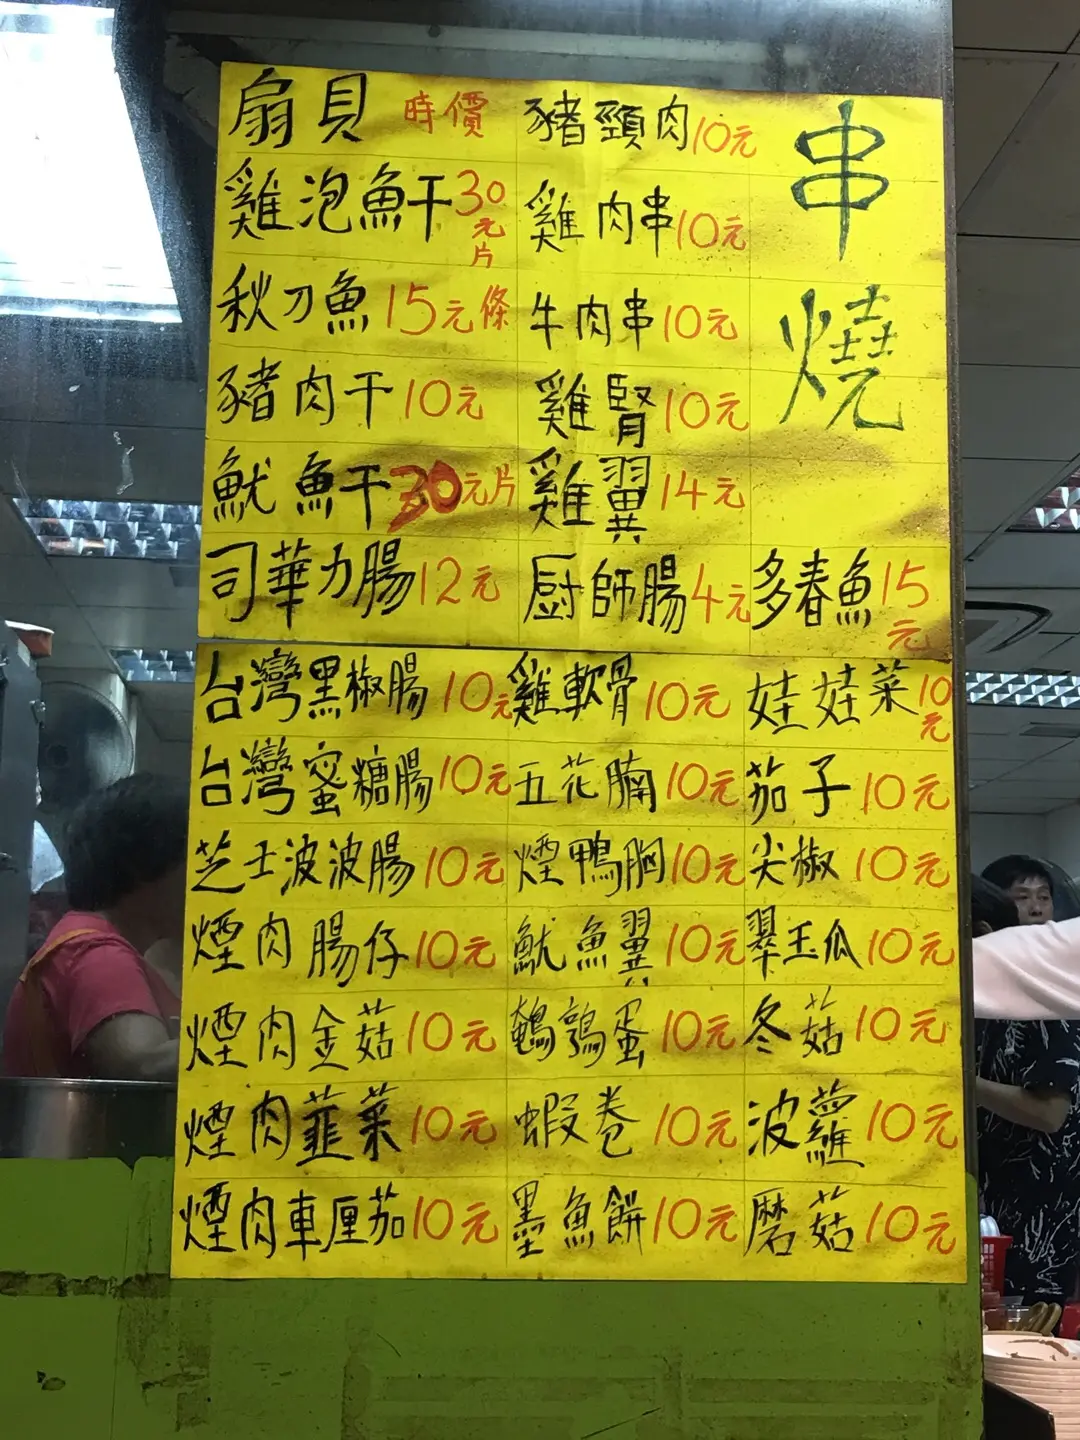 串燒
扇貝 時價
雞泡魚干 30元片
秋刀魚 15元條
豬肉干 10元
魷魚干 30元片
司華力腸 12元
豬頸肉 10元
雞肉串 10元
牛肉串 10元
雞腎 10元
雞翼 14元
厨師腸 4元
多春魚 15元
台灣黑椒腸 10元
台灣蜜糖腸 10元
芝士波波腸 10元
煙肉腸仔 10元
煙肉金菇 10元
煙肉韮菜 10元
煙肉車厘茄 10元
雞軟骨 10元
五花腩 10元
煙鴨胸 10元
魷魚翼 10元
鵪鶉蛋 10元
蝦卷 10元
墨魚餅 10元
娃娃菜 10元
茄子 10元
尖椒 10元
翠玉瓜 10元
冬菇 10元
波蘿 10元
磨菇 10元